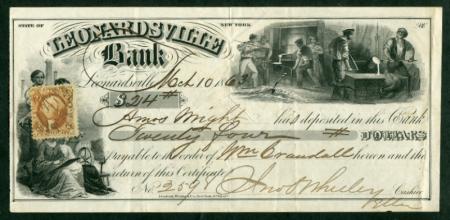 STATE OF NEW YORK
LEONARDSVILLE
Bank
Leonardsville Mch 10 186
$24#
Amos Wright has deposited in this Bank
Twenty Four # DOLLARS
Payable to the order of Wm Crandall hereon and the
return of this Certificate
No 2591 Jno O Wheeler Cashier